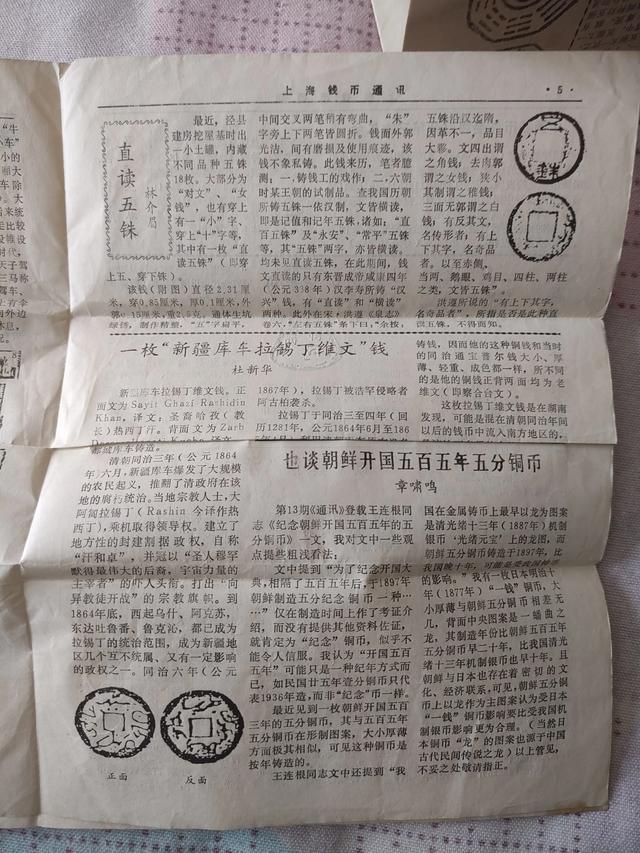 上海钱币通讯
·5·
直读五铢
林介眉
最近，泾县
建房挖屋基时出
一小土罐，内藏
不同品种五铢
18枚。大部分为
“对文”、“女
钱”，也有穿上
有一“小”字、
穿上“十”字等，
其中有一枚“直
读五铢”（即穿
上五、穿下铢）。
该钱（附图）直径2.31厘
米，穿0.85厘米，厚0.1厘米，外
郭0.15厘米，重2.5克。通体生坑
绿锈，制作精整，“五”字扁平，
中间交叉两笔稍有弯曲，“朱”
字旁上下两笔皆圆折。钱面外郭
光洁，间有磨损及使用痕迹，该
钱不象私铸。此钱来历，笔者臆
测：一，铸钱工的戏作；二，六朝
时某王朝的试制品。查我国历朝
所铸五铢一依汉制，文皆横读，
即是记值和记年五铢，诸如：“直
百五铢”及“永安”、“常平”五铢
等，其“五铢”两字，亦皆横读。
均未见直读五铢，在此期间，钱
文直读的只有东晋成帝咸康四年
（公元338年）汉李寿所铸“汉
兴”钱，有“直读”和“横读”
两种。此外在宋·洪遵《泉志》
卷六，“左右五铢”条下曰：“余按，
五铢沿汉迄隋，
因革不一，品目
大夥。文四出谓
之角钱；去肉郭
谓之女钱；狭小
其制谓之稚钱；
三面无郭谓之白
钱；有反其文，
名传形者；有上
下其字，名奇品
者。以至赤侧、
当两、鹅眼、鸡目、四柱、两柱
之类，文皆五铢”。
洪遵所说的“有上下其字，
名奇品者”，所指是否是此种直
读五铢，不得而知。
一枚“新疆库车拉锡丁维文”钱
杜新华
新疆库车拉锡丁维文钱。正
面文为Sayit Ghazi Rashidin
Khan，译文：圣裔哈孜（教
长）热西丁汗。背面文为Zarb
都城库车铸造。
清朝同治三年（公元1864
年）六月，新疆库车爆发了大规模
的农民起义，推翻了清政府在该
地的腐朽统治。当地宗教人士，大
阿訇拉锡丁（Rashin今译作热
西丁），乘机取得领导权。建立了
地方性的封建割据政权，自称
“汗和卓”，并冠以“圣人穆罕
默得最伟大的后裔，宇宙力量的
主宰者”的吓人头衔。打出“向
异教徒开战”的宗教旗帜。到
1864年底，西起乌什、阿克苏，
东达吐鲁番、鲁克沁，都已成为
拉锡丁的统治范围，成为新疆地
区几个互不统属、又有一定影响
的政权之一。同治六年（公元
正面
反面
1867年），拉锡丁被浩罕侵略者
阿古柏袭杀。
拉锡丁于同治三至四年（回
历1281年，公元1864年6月至186
铸钱，因而他的这种铜钱和当时
的同治通宝普尔钱大小、厚
薄、轻重、成色都一样，所不同
的是他的铜钱正背两面均为老
维文（即察合台文）。
这枚拉锡丁维文钱是在湖南
发现，可能是混在清朝同治年间
以后的钱币中流入南方地区的，
也谈朝鲜开国五百五年五分铜币
章啸鸣
第13期《通讯》登载王连根同
志《纪念朝鲜开国五百五年的五
分铜币》一文，我对文中一些观
点提些粗浅看法：
文中提到“为了纪念开国大
典，相隔了五百五年后，于1897年
朝鲜制造五分纪念铜币一种……
……”仅在制造时间上作了考证介
绍，而没有提供其他资料佐证，
就肯定为“纪念”铜币，似乎不
能令人信服。我认为“开国五百
五年”可能只是一种纪年方式而
已，如民国廿五年壹分铜币只代
表1936年造，而非“纪念”币一样。
最近见到一枚朝鲜开国五百
三年的五分铜币，其与五百五年
五分铜币在形制图案，大小厚薄
方面极其相似，可见这种铜币是
按年铸造的。
王连根同志文中还提到“我
国在金属铸币上最早以龙为图案
是清光绪十三年（1887年）机制
银币‘光绪元宝’上的龙图，而
朝鲜五分铜币铸造于1897年，比
我国晚十年，可能是受我国龙币
的影响。”我有一枚日本明治十
年（1877年）“一钱”铜币，大
小厚薄与朝鲜五分铜币相差无
几，背面中央图案是一蟠曲之
龙，其制造年份比朝鲜五百五年
五分铜币早二十年，比我国清光
绪十三年机制银币也早十年。且
朝鲜与日本也存在着密切的文
化、经济联系，可见，朝鲜五分铜
币上以龙作为主图案认为受日本
“一钱”铜币影响要比受我国机
制银币影响更为合理。（当然日
本铜币“龙”的图案也源于中国
古代民间传说之龙）以上管见，
不妥之处敬请指正。